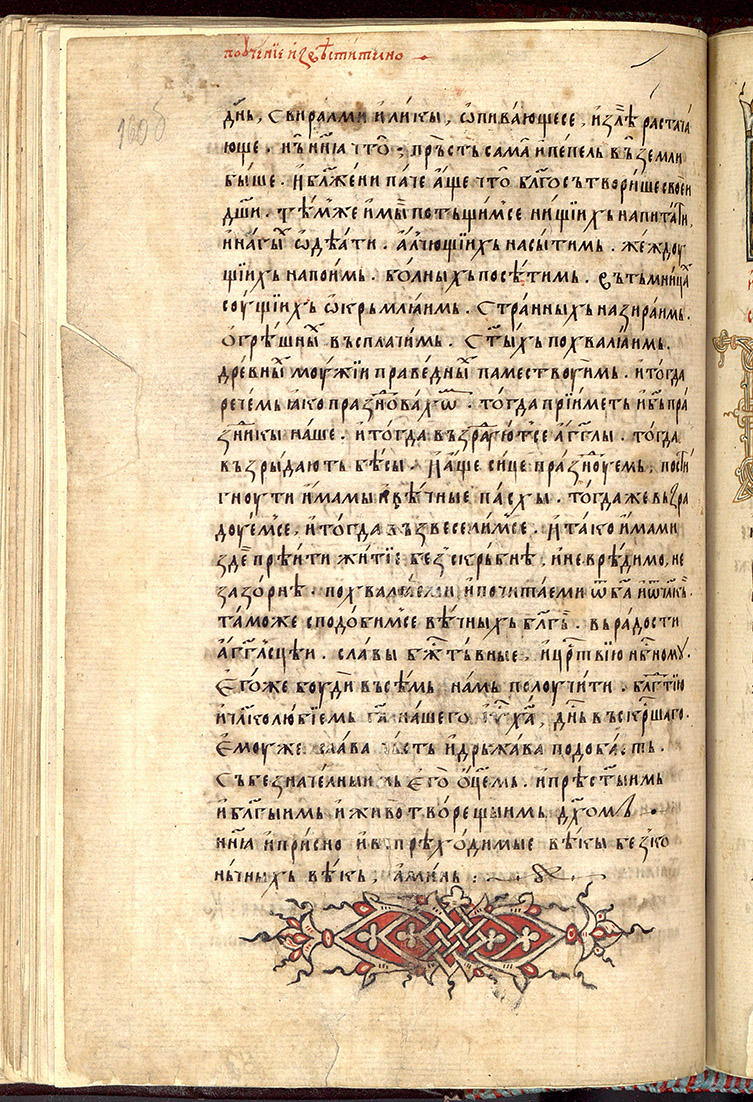 поꙋ́ченїе и҆звѣ́ститно
160б
дн҃ь, свирѧлми и҆ лики, ѡ҆пива́ющесе, и҆ злѣ̀ растача
юще. нн҃ꙗ что̀; пръ́сть сама̀ и҆ пе́пель въ земли
бы́ше. Н бл҃же́ни па́че а҆́ще что̀ бл҃го сътвори́ше свое́и
дш҃и. тѣ́мже и҆ мы̀ потъщи́мсе ни́щїихъ напита́ти,
и҆ наги́хь ѡ҆дѣ́ати. а҆́лчющїихъ насы́тимь. же́ждоу
щїихъ напои́мь. бо́лныхъ посѣ́тимь. въ тъмни́цахь
соу́щїихъ ѡ҆кръмлꙗ́имь. стра́нныхъ назира́имь.
ѡ҆ грѣ́шныхь въспла́чимь. ст҃ы́хъ похвалꙗ́имь.
дре́вныхь моу́жїи пра́ведныхь паме́ствоуимь. и҆ тогда
рече́мь ꙗ҆ко пра́зновахѡмь. тогда прїи́меть и҆ бъ҃ пра
зники на́ше. и҆ тогда възра́дꙋютсе а҆́гг҃лы. тогда
възры́дають бѣ́сы. Н а҆́ще си́це пра́зноуемь, пости
гноути и҆́мамы и҆ вѣ́чные па́схы. тогда́ же възра
доуе́мсе, и҆ тогда възвесели́мсе. Н та́ко и҆́мами
здѐ прѣи́ти житїѐ бе́з скръбнѣ, и҆ невре́димо, не
зазо́рнѣ. похвалꙗ́еми и҆ почита́еми ѿ ба҃ и҆ ѿ чл҃кь.
та́може сподо́бимсе вѣ́чныхъ бл҃гь. въ ра́дости
а҆́гг҃лсцѣи. сла́вы бж҃тъ́вные, и҆ цр҃твїю нб҃ному.
Е҆го́же боу́ди въсѣ́мь на́мь полоучи́ти. бл҃гⷣтїю
и҆ чл҃колю́бїемь га҃ на́шего і҆у҃ ха҃, дн҃ь въскр҃шаго.
Е҆моу́же сла́ва чьсть и҆ дръжа́ва подоба́еть.
Съ безначе́лныимь е҆го̀ ѻ҆ц҃емь. и҆ прѣст҃ы́имь
и҆ бл҃гы́имь и҆ живо́творещы́имь дх҃омь.
нн҃ꙗ и҆ при́сно и҆ въ прѣхо́димые вѣ́кы безко
нь́чныхъ вѣ́кь, а҆ми́нь :